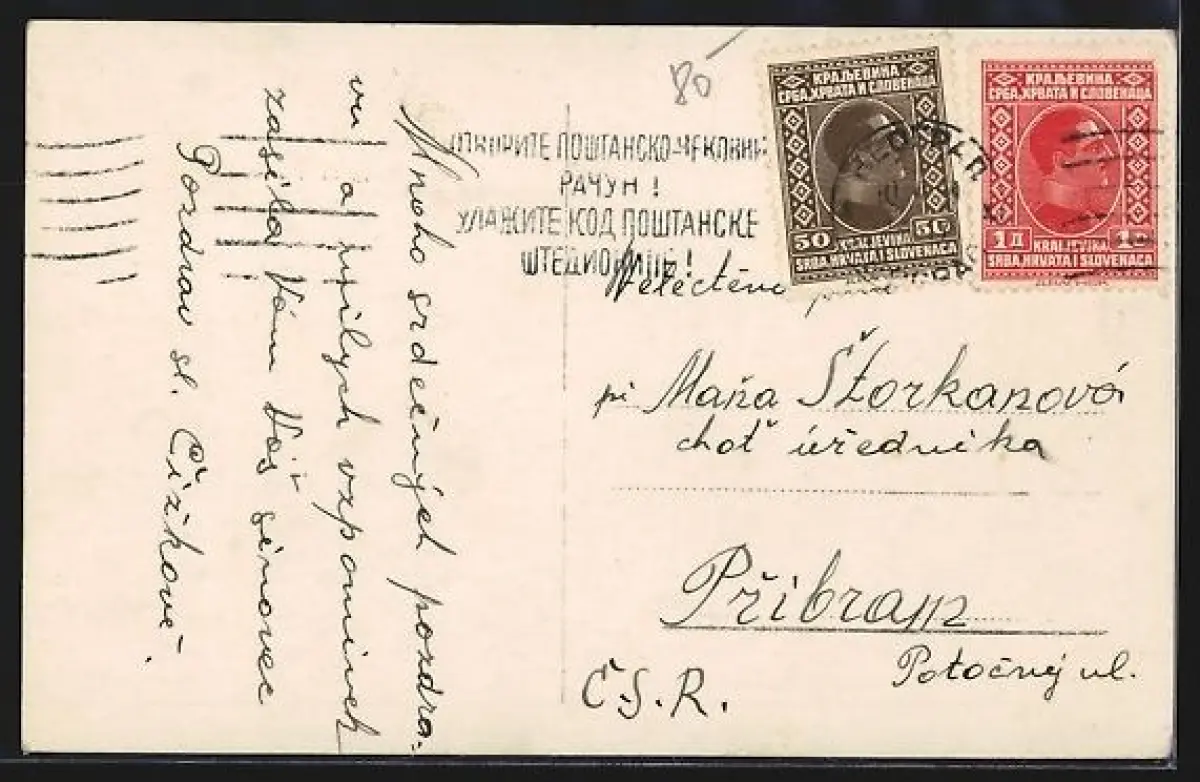 Mnoho srdečných pozdra-
vů a milých vzpomínek
zasílá Vám Váš sinovec
Pozdrav sl. Čížkové.
80
ОТВОРИТЕ ПОШТАНСКО-ЧЕКОВНИ
РАЧУН!
УЛАЖИТЕ КОД ПОШТАНСКЕ
ШТЕДИОНИЦЕ!
КРАЉЕВИНА
СРБА, ХРВАТА И СЛОВЕНАЦА
50 50
KRALJEVINA
SRBA, HRVATA I SLOVENACA
КРАЉЕВИНА
СРБА, ХРВАТА И СЛОВЕНАЦА
1Д 1D
KRALJEVINA
SRBA, HRVATA I SLOVENACA
BEOGRAD
Velectěná
pí Maňa Štorkanová
choť úředníka
Příbram
Potočný ul.
Č.S.R.